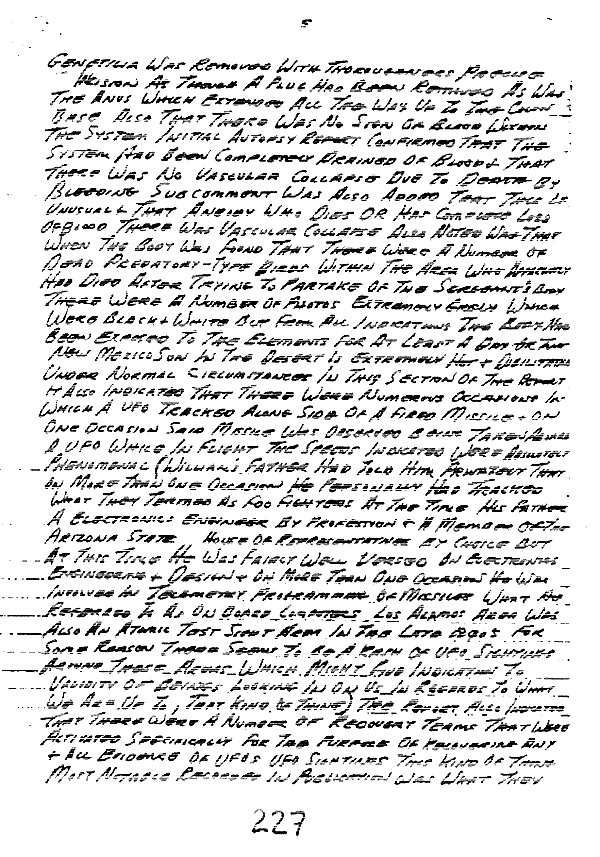 5
GENETILIA WAS REMOVED WITH THOROUGHNESS PRECISE
INCISION AS THOUGH A PLUG HAD BEEN REMOVED AS WAS
THE ANUS WHICH EXTENDED ALL THE WAY UP TO THE COLON
BASE ALSO THAT THERE WAS NO SIGN OF BLOOD WITHIN
THE SYSTEM INITIAL AUTOPSY REPORT CONFIRMED THAT THE
SYSTEM HAD BEEN COMPLETELY DRAINED OF BLOOD + THAT
THERE WAS NO VASCULAR COLLAPSE DUE TO DEATH BY
BLEEDING SUBCOMMENT WAS ALSO ADDED THAT THIS IS
UNUSUAL + THAT ANYBODY WHO DIES OR HAS COMPLETE LOSS
OF BLOOD THERE WAS VASCULAR COLLAPSE ALSO NOTED WAS THAT
WHEN THE BODY WAS FOUND THAT THERE WERE A NUMBER OF
DEAD PREDATORY-TYPE BIRDS WITHIN THE AREA WHO APPARENTLY
HAD DIED AFTER TRYING TO PARTAKE OF THE SERGEANT'S BODY
THERE WERE A NUMBER OF PHOTOS EXTREMELY GRISLY WHICH
WERE BLACK + WHITE BUT FROM ALL INDICATIONS THE BODY HAD
BEEN EXPOSED TO THE ELEMENTS FOR AT LEAST A DAY OR TWO
NEW MEXICO SUN IN THE DESERT IS EXTREMELY HOT + DEBILITATING
UNDER NORMAL CIRCUMSTANCES IN THIS SECTION OF THE REPORT
IT ALSO INDICATED THAT THERE WERE NUMEROUS OCCASIONS IN
WHICH A UFO TRACKED ALONG SIDE OF A FIRED MISSILE + ON
ONE OCCASION SAID MISSILE WAS OBSERVED BEING TAKEN ABOARD
A UFO WHILE IN FLIGHT THE SPEEDS INDICATED WERE ABSOLUTELY
PHENOMENAL (WILLIAM'S FATHER HAD TOLD HIM PRIVATELY THAT
ON MORE THAN ONE OCCASION HE PERSONALLY HAD TRACKED
WHAT THEY TERMED AS FOO FIGHTERS AT THE TIME HIS FATHER
A ELECTRONICS ENGINEER BY PROFESSION + A MEMBER OF THE
ARIZONA STATE HOUSE OF REPRESENTATIVES BY CHOICE BUT
AT THIS TIME HE WAS FAIRLY WELL VERSED ON ELECTRONICS
ENGINEERING + DESIGN + ON MORE THAN ONE OCCASION HE WAS
INVOLVED IN TELEMETRY PROGRAMMING OF MISSILES WHAT HE
REFERRED TO AS ON BOARD COMPUTERS LOS ALAMOS AREA WAS
ALSO AN ATOMIC TEST SIGHT AREA IN THE LATE 1940'S FOR
SOME REASON THERE SEEMS TO BE A RASH OF UFO SIGHTINGS
AROUND THESE AREAS WHICH MIGHT GIVE INDICATION TO
VALIDITY OF BEINGS LOOKING IN ON US IN REGARDS TO WHAT
WE ARE UP TO, THAT KIND OF THING) THE REPORT ALSO INDICATED
THAT THERE WERE A NUMBER OF RECOVERY TEAMS THAT WERE
ACTIVATED SPECIFICALLY FOR THE PURPOSE OF RECOVERING ANY
+ ALL EVIDENCE OF UFOS UFO SIGHTINGS THIS KIND OF THING
MOST NOTABLE RECORDED IN PUBLICATION WAS WHAT THEY
227